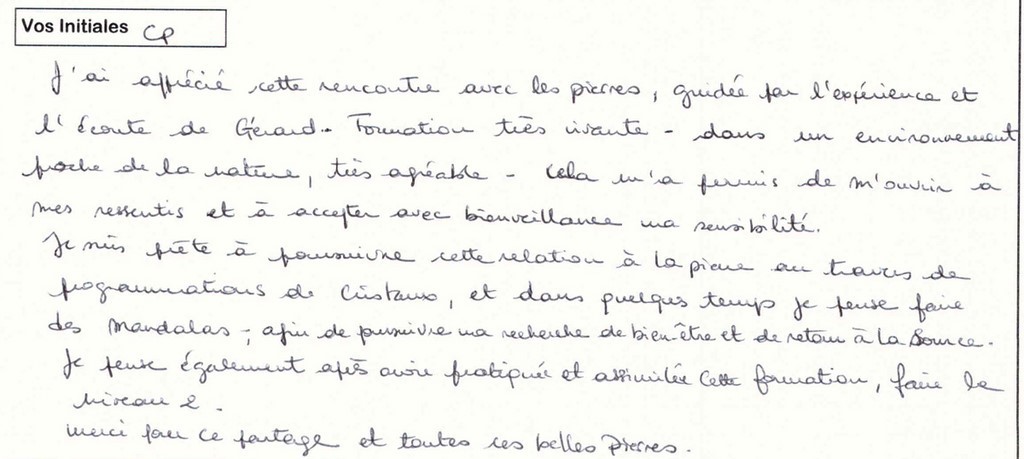 Vos Initiales CP
J'ai apprécié cette rencontre avec les pierres, guidée par l'expérience et
l'écoute de Gérard - Formation très vivante - dans un environnement
proche de la nature, très agréable - Cela m'a permis de m'ouvrir à
mes ressentis et à accepter avec bienveillance ma sensibilité.
Je suis prête à poursuivre cette relation à la pierre au travers de
programmations de Cristaux, et dans quelques temps je pense faire
des Mandalas -, afin de pursuivre ma recherche de bien-être et de retour à la Source.
Je pense également après avoir pratiquée et assimilée cette formation, faire le
niveau 2.
Merci pour ce partage et toutes ces belles Pierres.